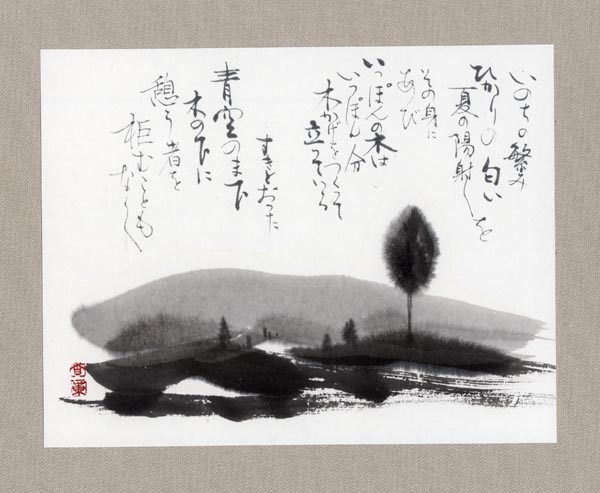 いのちの繁み
ひかりの匂い
夏の陽射しを
その身に
あび
いっぽんの木は
いっぽん分
木かげをつくって
立っている
すきとおった
青空のま下
木の下に
憩う者を
拒むことも
なく